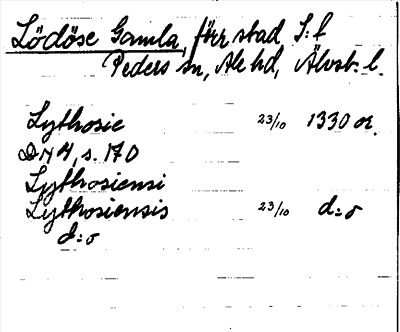 Lödöse Gamla, förr stad S:t
Peders sn, Ale hd, Älvsb. l.
Lythosie 23/10 1330 or.
DN 4, s. 170
Lythosiensi
Lythosiensis 23/10 d:o
d:o